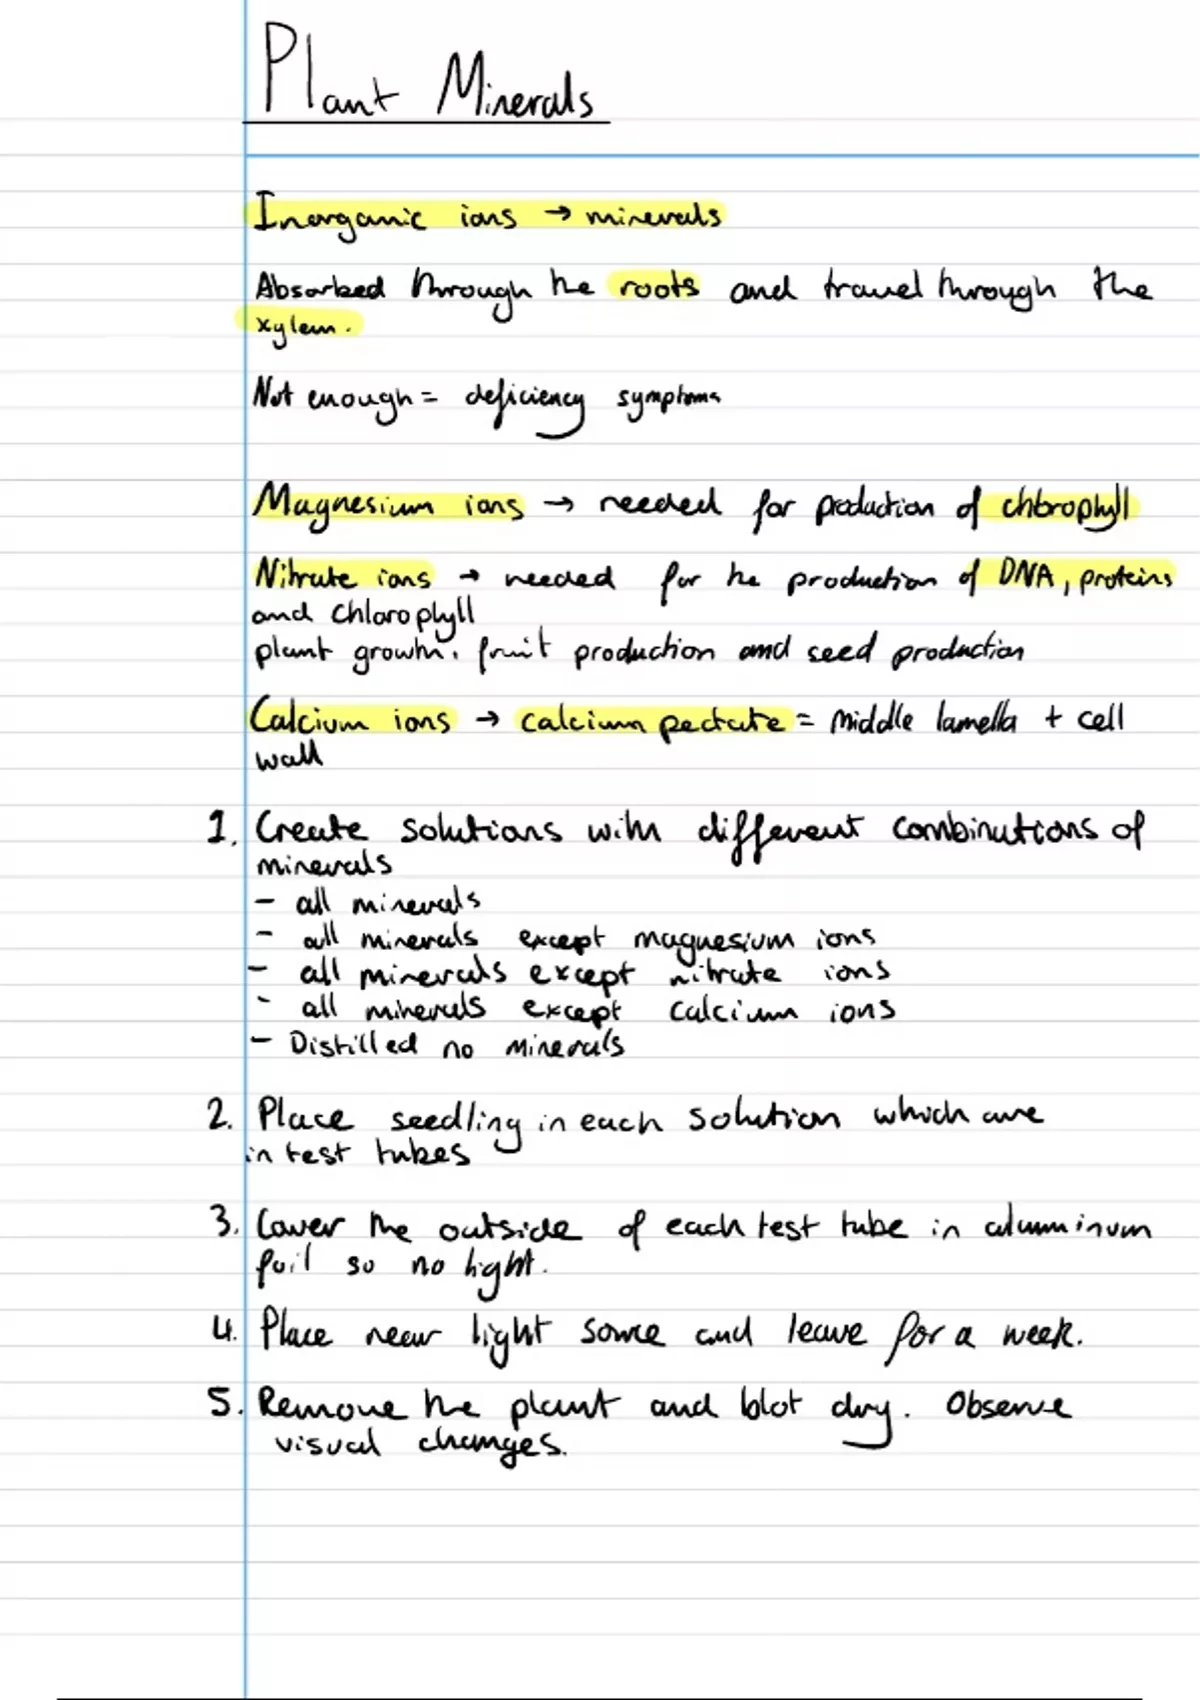 Plant Minerals
Inorganic ions → minerals
Absorbed through the roots and travel through the
xylem.
Not enough = deficiency symptoms
Magnesium ions → needed for production of chlorophyll
Nitrate ions → needed for the production of DNA, proteins
and chlorophyll
plant growth, fruit production and seed production
Calcium ions → calcium pectate = middle lamella + cell
wall
1. Create solutions with different combinations of
minerals
- all minerals
- all minerals except magnesium ions
- all minerals except nitrate ions
- all minerals except calcium ions
- Distilled no minerals
2. Place seedling in each solution which are
in test tubes
3. Cover the outside of each test tube in aluminum
foil so no light.
4. Place near light source and leave for a week.
5. Remove the plant and blot dry. Observe
visual changes.